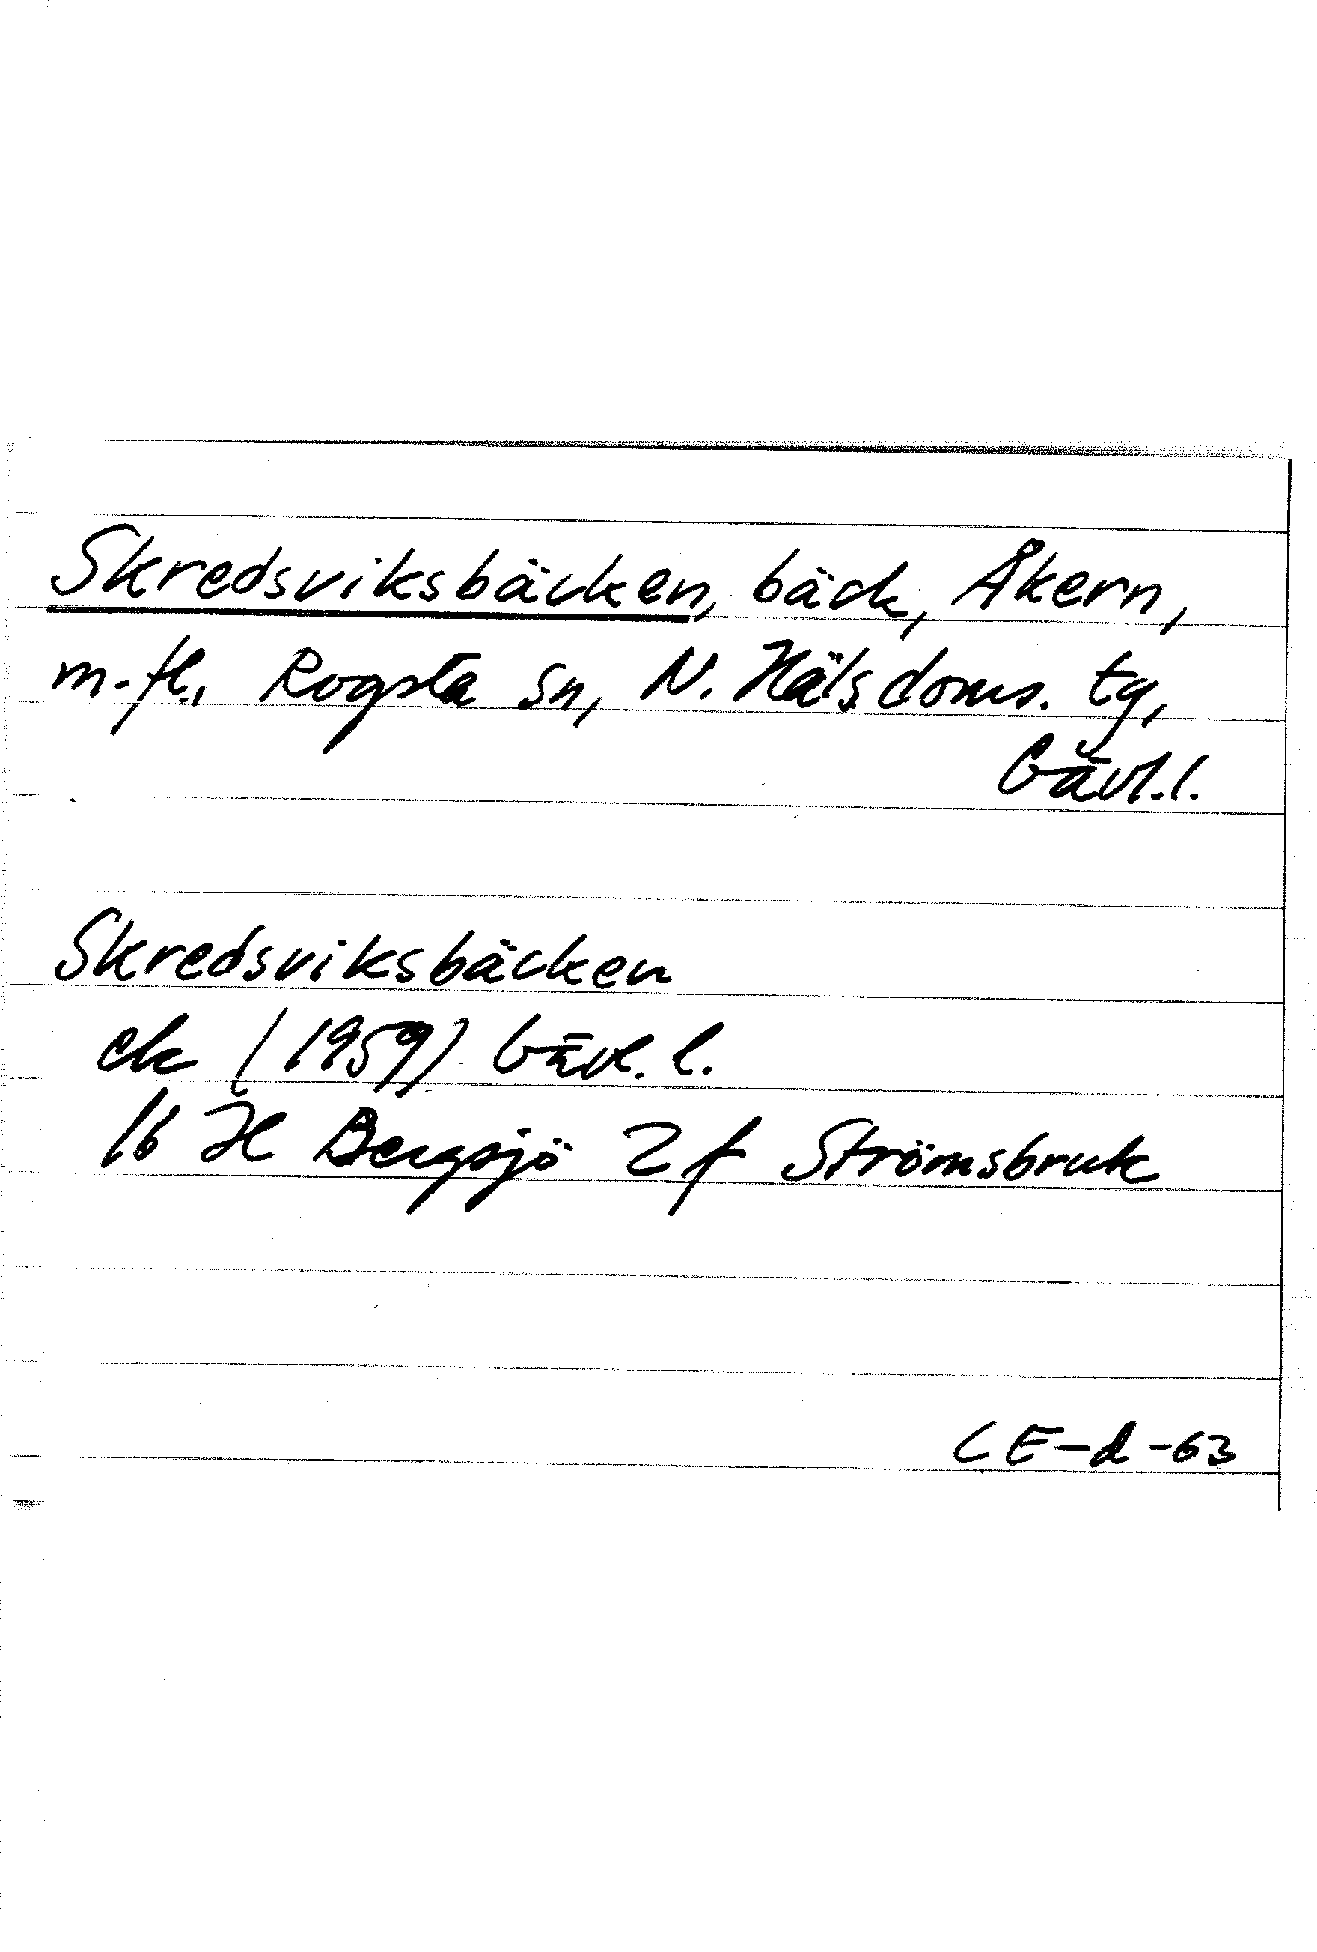 Skredsviksbäcken, bäck, Åkern,
m. fl., Rogsta sn, N. Hälsdoms. tg,
Gävl. l.
Skredsviksbäcken
ek (1959) Gävl. l.
16 H Bergsjö 2 f Strömsbruk
CE-d-63